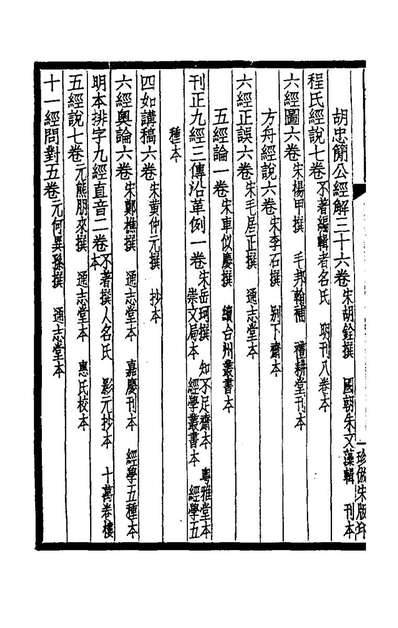 胡忠簡公經解三十六卷宋胡銓撰 國朝朱文藻輯 刊本
程氏經說七卷不著編輯者名氏 明刊八卷本
六經圖六卷宋楊甲撰 毛邦翰補 禮耕堂刊本
方舟經說六卷宋李石撰 別下齋本
六經正誤六卷宋毛居正撰 通志堂本
五經論一卷宋車似慶撰 續台州叢書本
刊正九經三傳沿革例一卷宋岳珂撰 知不足齋本 粵雅堂本 崇文局本 經學叢書本 經學五
種本
四如講稿六卷宋黃仲元撰 抄本
六經奧論六卷宋鄭樵撰 通志堂本 嘉慶刊本 經學五種本
明本排字九經直音二卷不著撰人名氏 影元抄本 十萬卷樓本
五經說七卷元熊朋來撰 通志堂本 惠氏校本
十一經問對五卷元何異孫撰 通志堂本
珍倣宋版印